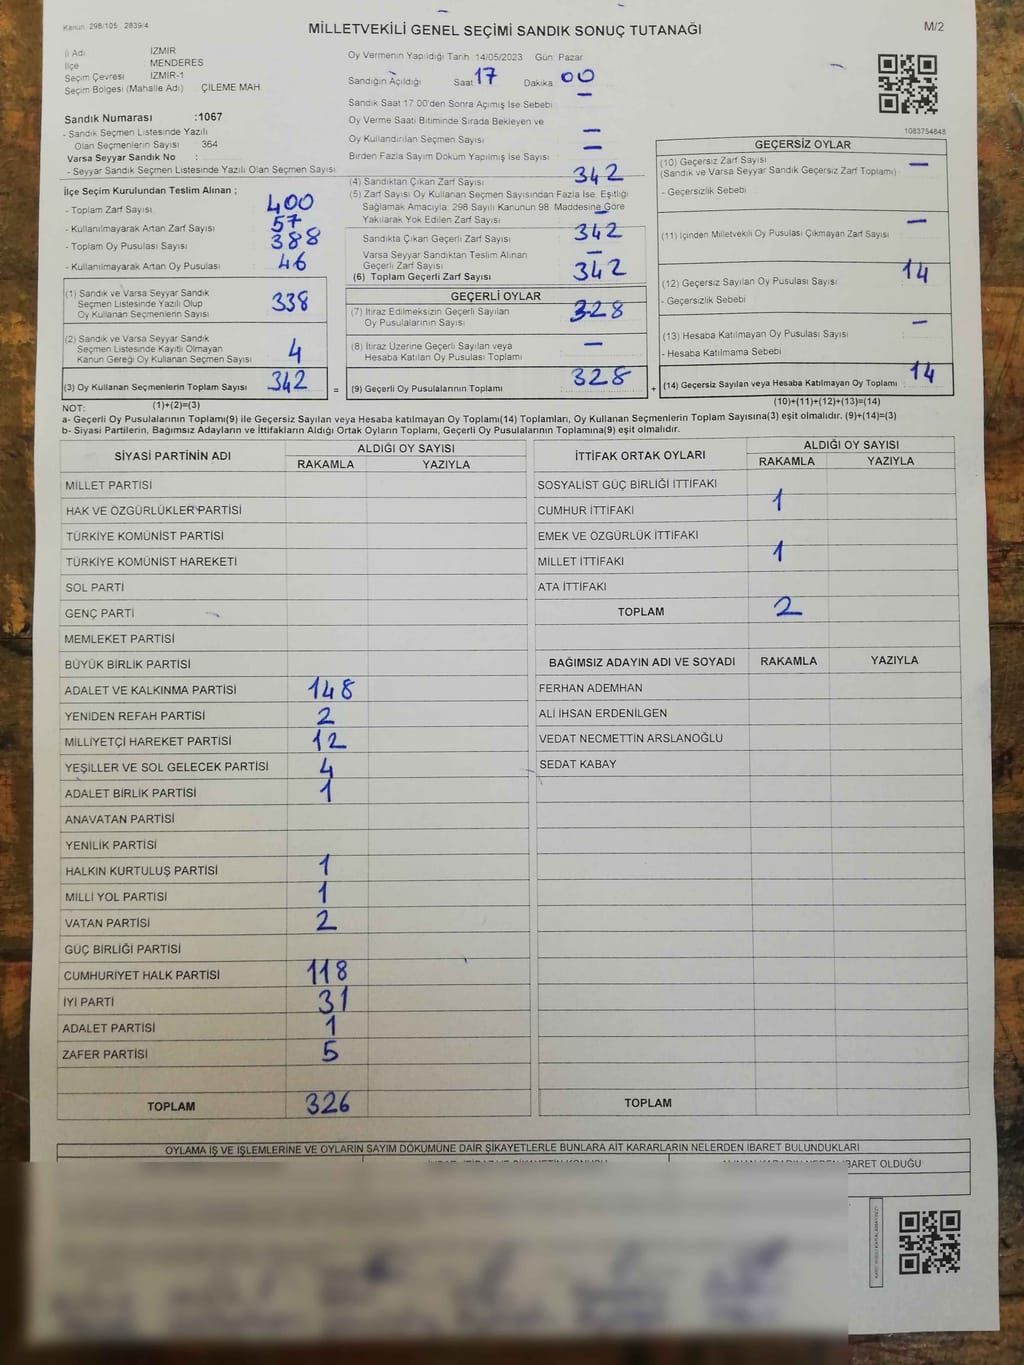 Kanun: 298/105 , 2839/4
MİLLETVEKİLİ GENEL SEÇİMİ SANDIK SONUÇ TUTANAĞI
M/2
İl Adı İZMİR
İlçe MENDERES
Seçim Çevresi İZMİR-1
Seçim Bölgesi (Mahalle Adı) ÇİLEME MAH.
Oy Vermenin Yapıldığı Tarih 14/05/2023 Gün Pazar
Sandığın Açıldığı Saat 17 Dakika 00
Sandık Saat 17:00'den Sonra Açımış İse Sebebi —
Oy Verme Saati Bitiminde Sırada Bekleyen ve
Oy Kullandırılan Seçmen Sayısı —
Birden Fazla Sayım Döküm Yapılmış İse Sayısı —
1083754848
Sandık Numarası :1067
- Sandık Seçmen Listesinde Yazılı
Olan Seçmenlerin Sayısı 364
Varsa Seyyar Sandık No :
- Seyyar Sandık Seçmen Listesinde Yazılı Olan Seçmen Sayısı:
İlçe Seçim Kurulundan Teslim Alınan ;
- Toplam Zarf Sayısı 400
- Kullanılmayarak Artan Zarf Sayısı 57
- Toplam Oy Pusulası Sayısı 388
- Kullanılmayarak Artan Oy Pusulası 46
(1) Sandık ve Varsa Seyyar Sandık
Seçmen Listesinde Yazılı Olup
Oy Kullanan Seçmenlerin Sayısı 338
(2) Sandık ve Varsa Seyyar Sandık
Seçmen Listesinde Kayıtlı Olmayan
Kanun Gereği Oy Kullanan Seçmen Sayısı 4
(3) Oy Kullanan Seçmenlerin Toplam Sayısı 342 =
(1)+(2)=(3)
(4) Sandıktan Çıkan Zarf Sayısı 342
(5) Zarf Sayısı Oy Kullanan Seçmen Sayısından Fazla İse, Eşitliği
Sağlamak Amacıyla; 298 Sayılı Kanunun 98. Maddesine Göre
Yakılarak Yok Edilen Zarf Sayısı —
Sandıkta Çıkan Geçerli Zarf Sayısı 342
Varsa Seyyar Sandıktan Teslim Alınan
Geçerli Zarf Sayısı
(6) Toplam Geçerli Zarf Sayısı 342
GEÇERLİ OYLAR
(7) İtiraz Edilmeksizin Geçerli Sayılan
Oy Pusulalarının Sayısı 328
(8) İtiraz Üzerine Geçerli Sayılan veya
Hesaba Katılan Oy Pusulası Toplamı —
(9) Geçerli Oy Pusulalarının Toplamı 328 +
GEÇERSİZ OYLAR
(10) Geçersiz Zarf Sayısı —
(Sandık ve Varsa Seyyar Sandık Geçersiz Zarf Toplamı)
- Geçersizlik Sebebi
(11) İçinden Milletvekili Oy Pusulası Çıkmayan Zarf Sayısı —
(12) Geçersiz Sayılan Oy Pusulası Sayısı 14
- Geçersizlik Sebebi
(13) Hesaba Katılmayan Oy Pusulası Sayısı —
- Hesaba Katılmama Sebebi
(14) Geçersiz Sayılan veya Hesaba Katılmayan Oy Toplamı 14
(10)+(11)+(12)+(13)=(14)
NOT:
a- Geçerli Oy Pusulalarının Toplamı(9) ile Geçersiz Sayılan veya Hesaba katılmayan Oy Toplamı(14) Toplamları, Oy Kullanan Seçmenlerin Toplam Sayısına(3) eşit olmalıdır. (9)+(14)=(3)
b- Siyasi Partilerin, Bağımsız Adayların ve İttifakların Aldığı Ortak Oyların Toplamı, Geçerli Oy Pusulalarının Toplamına(9) eşit olmalıdır.
SİYASİ PARTİNİN ADI ALDIĞI OY SAYISI
RAKAMLA YAZIYLA
MİLLET PARTİSİ
HAK VE ÖZGÜRLÜKLER PARTİSİ
TÜRKİYE KOMÜNİST PARTİSİ
TÜRKİYE KOMÜNİST HAREKETİ
SOL PARTİ
GENÇ PARTİ
MEMLEKET PARTİSİ
BÜYÜK BİRLİK PARTİSİ
ADALET VE KALKINMA PARTİSİ 148
YENİDEN REFAH PARTİSİ 2
MİLLİYETÇİ HAREKET PARTİSİ 12
YEŞİLLER VE SOL GELECEK PARTİSİ 4
ADALET BİRLİK PARTİSİ 1
ANAVATAN PARTİSİ
YENİLİK PARTİSİ
HALKIN KURTULUŞ PARTİSİ 1
MİLLİ YOL PARTİSİ 1
VATAN PARTİSİ 2
GÜÇ BİRLİĞİ PARTİSİ
CUMHURİYET HALK PARTİSİ 118
İYİ PARTİ 31
ADALET PARTİSİ 1
ZAFER PARTİSİ 5
TOPLAM 326
İTTİFAK ORTAK OYLARI ALDIĞI OY SAYISI
RAKAMLA YAZIYLA
SOSYALİST GÜÇ BİRLİĞİ İTTİFAKI
CUMHUR İTTİFAKI 1
EMEK VE ÖZGÜRLÜK İTTİFAKI
MİLLET İTTİFAKI 1
ATA İTTİFAKI
TOPLAM 2
BAĞIMSIZ ADAYIN ADI VE SOYADI RAKAMLA YAZIYLA
FERHAN ADEMHAN
ALİ İHSAN ERDENİLGEN
VEDAT NECMETTİN ARSLANOĞLU
SEDAT KABAY
TOPLAM
OYLAMA İŞ VE İŞLEMLERİNE VE OYLARIN SAYIM DÖKÜMÜNE DAİR ŞİKAYETLERLE BUNLARA AİT KARARLARIN NELERDEN İBARET BULUNDUKLARI
İBARET OLDUĞU